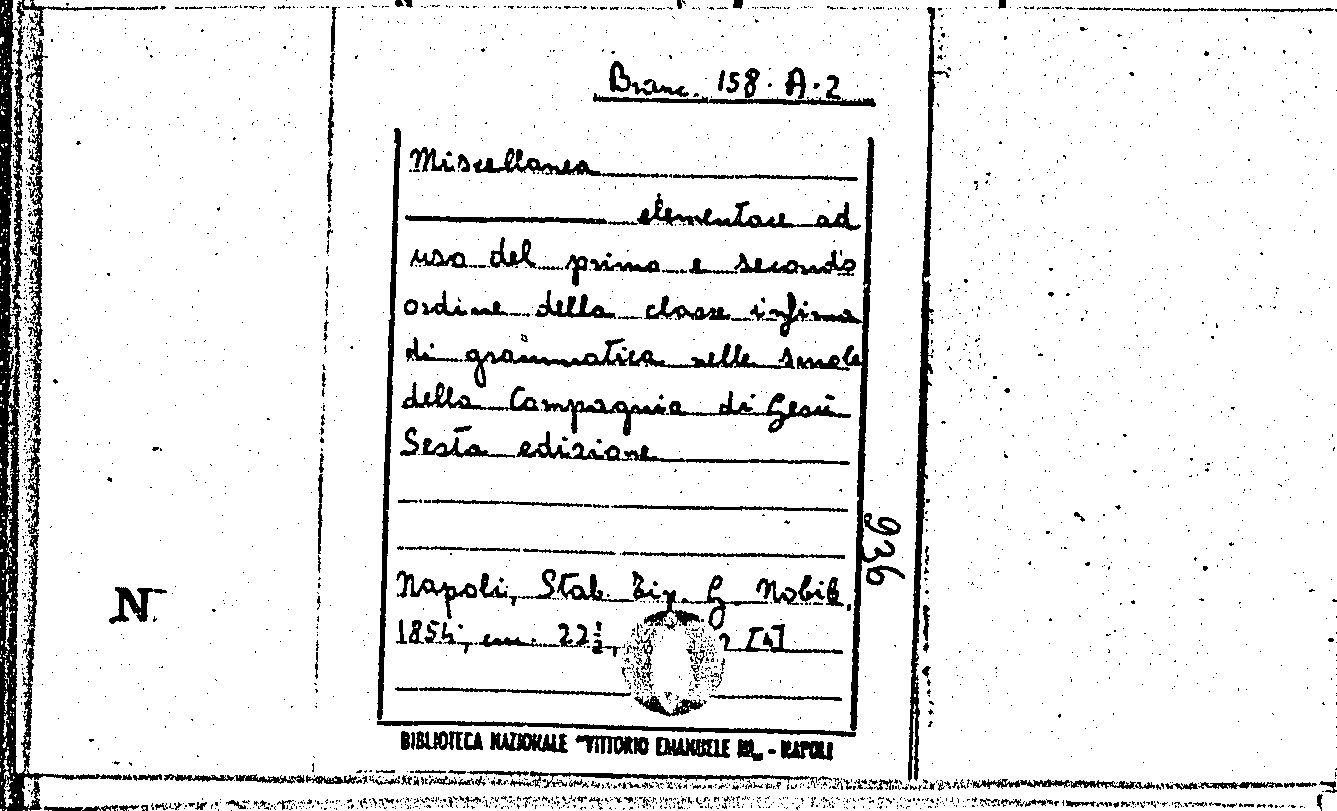 Branc. 158. A. 2
Miscellanea
elementare ad
uso del primo e secondo
ordine della classe infima
di grammatica nelle scuole
della Compagnia di Gesù
Sesta edizione
936
Napoli, Stab. Tip. G. Nobile,
1854, cm. 22½, 2 [4]
N
BIBLIOTECA NAZIONALE "VITTORIO EMANUELE III" - NAPOLI